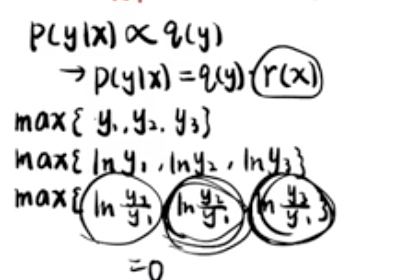 p(y|x) ∝ q(y)
→ p(y|x) = q(y) · r(x)
max{ y₁, y₂, y₃}
max{ ln y₁, ln y₂, ln y₃}
max{ ln y₂/y₁ ln y₂/y₁ ln y₃/y₁ }
=0